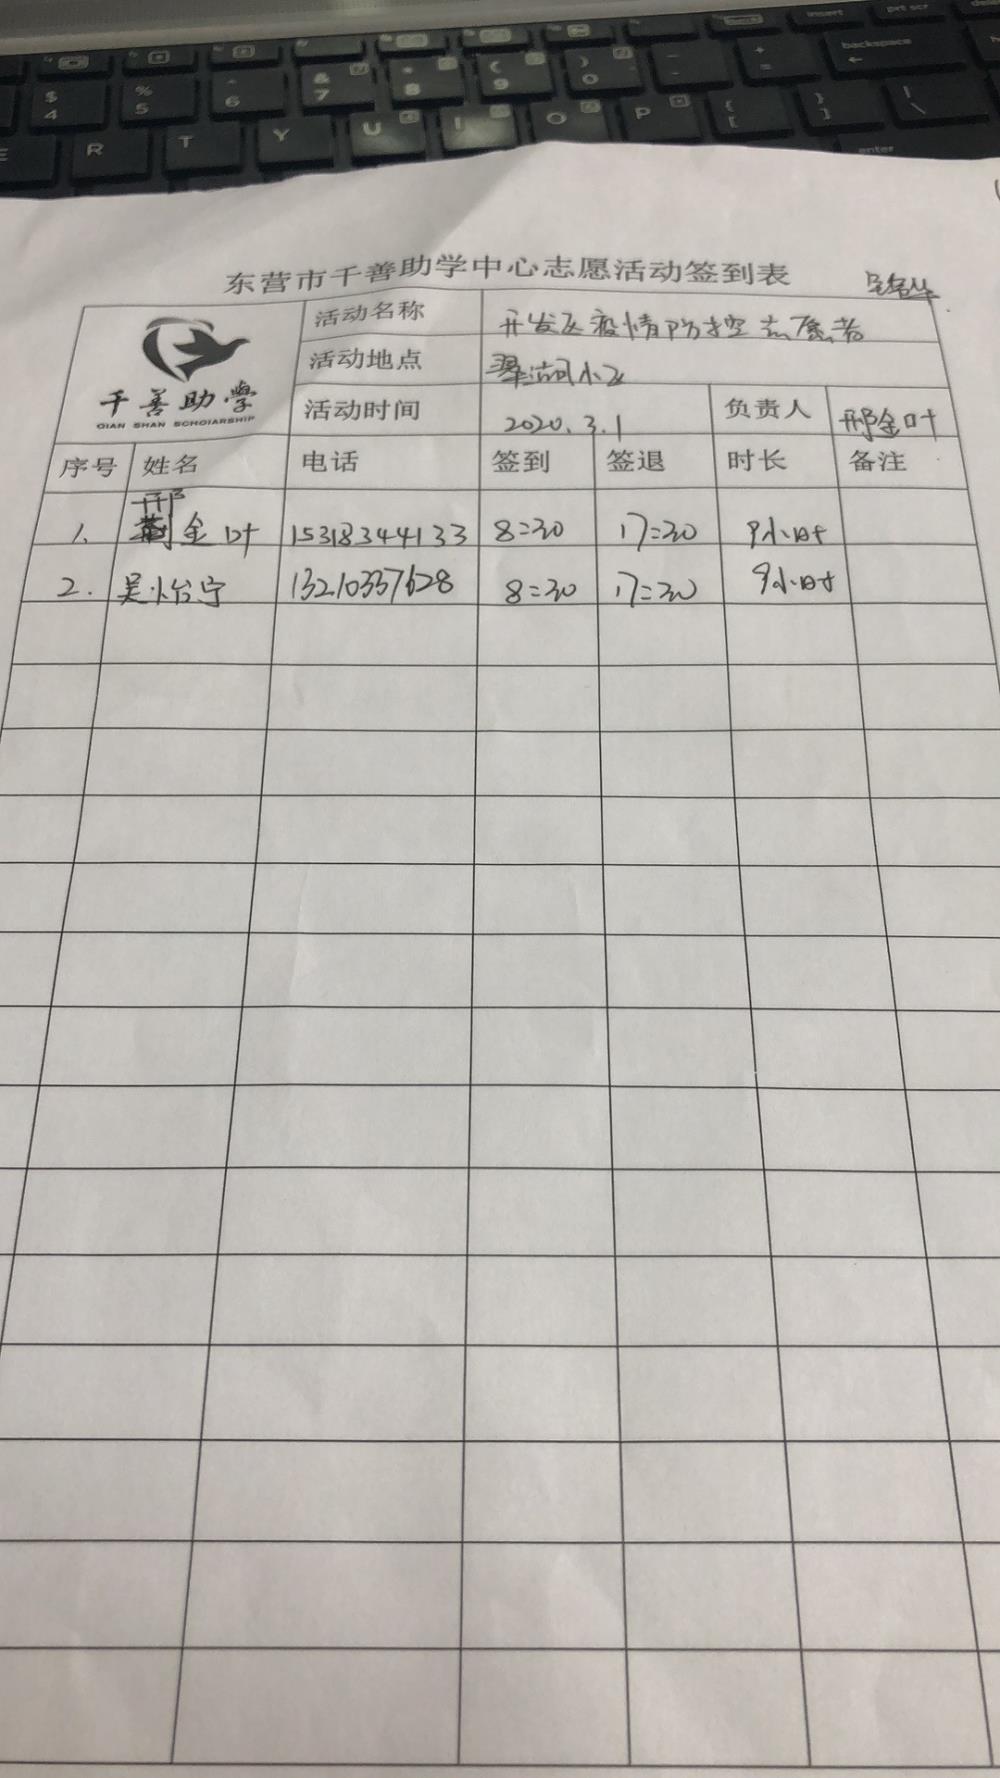 insert
prt sc
backspace
$ 4
% 5
^ 6
& 7
* 8
( 9
) 0
- 
+ =
E R T Y U I O P { [ } ] | \
enter
东营市千善助学中心志愿活动签到表
千善助學
QIAN SHAN SCHOIARSHIP
活动名称 开发区疫情防控志愿者
活动地点 翠湖小区
活动时间 2020.3.1 负责人 邢金叶
序号 姓名 电话 签到 签退 时长 备注
邢
1. 金叶 15318344133 8:30 17:30 9小时
2. 吴怡宁 13210337628 8:30 17:30 9小时